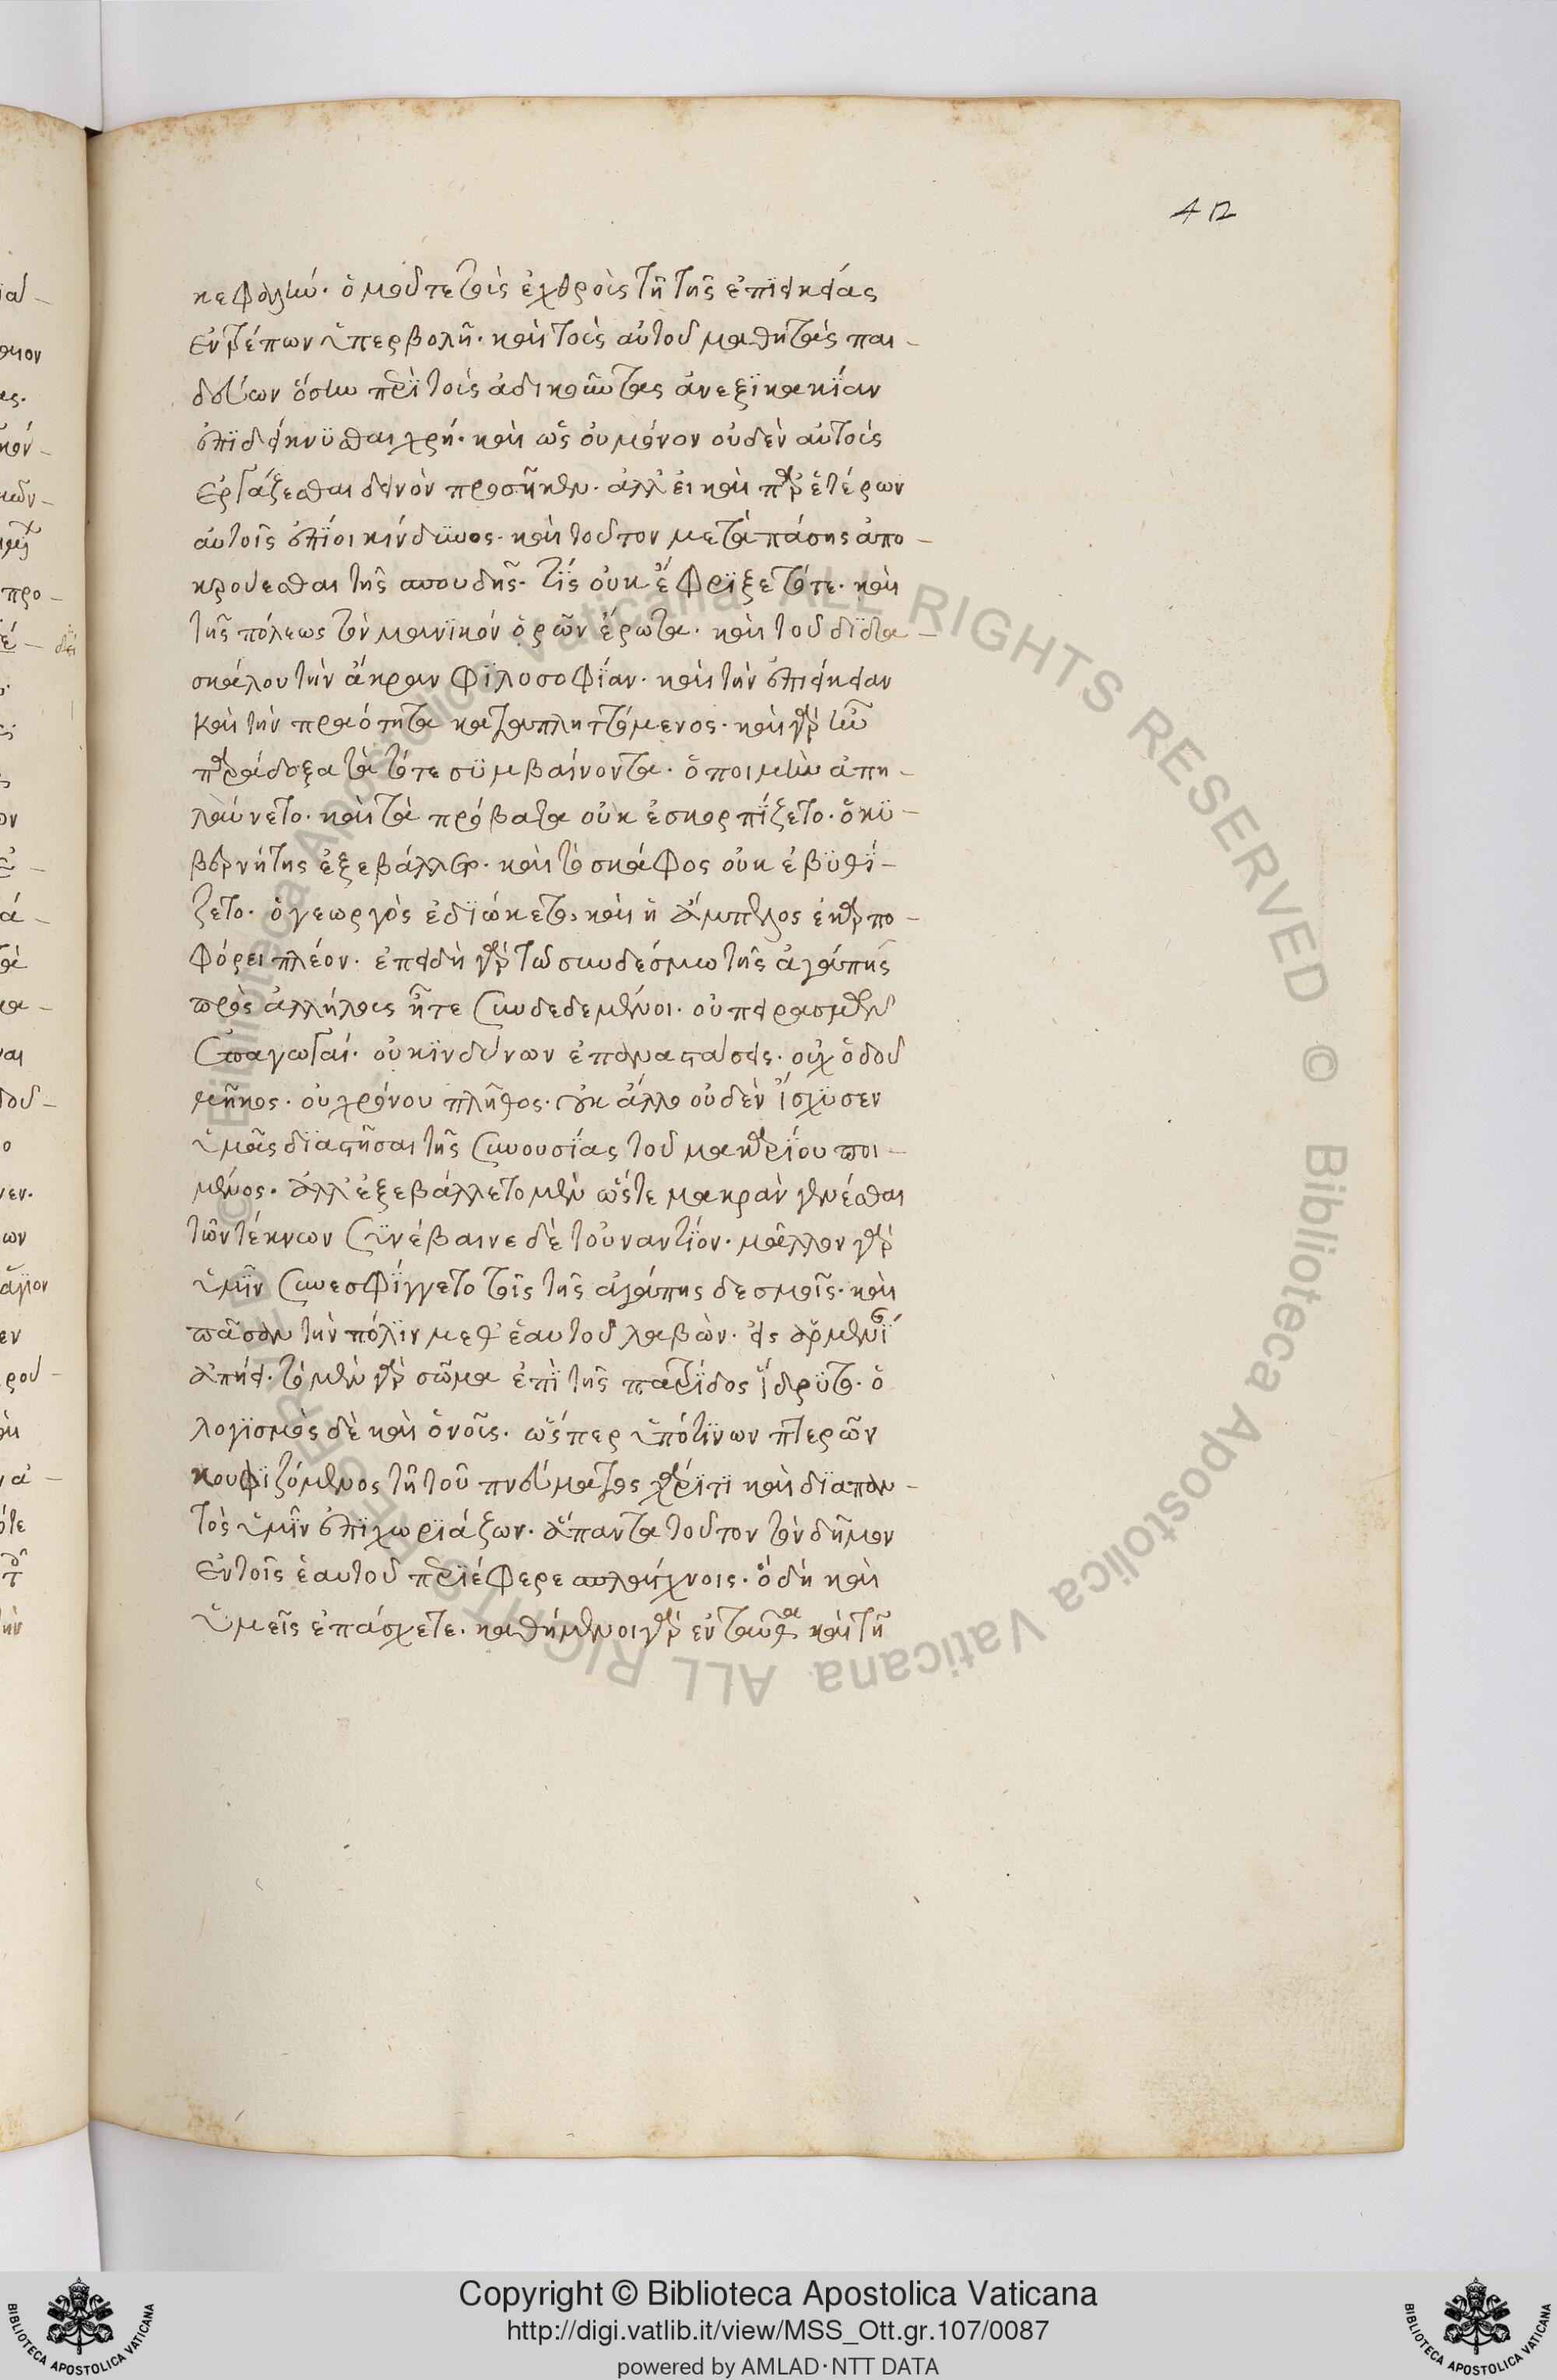 42
κεφαλήν. ὁμοῦ τε τοὺς ἐχθροὺς τῆ τῆς ἐπϊεικείας
ἐντρέπων ὑπερβολῆ. καὶ τοὺς αὐτοῦ μαθητὰς παι-
δεύων ὅσην περὶ τοὺς ἀδικοῦντας ἀνεξϊκακίαν
ἐπϊδείκνϋσθαι χρή. καὶ ὡς οὐ μόνον οὐδὲν αὐτοὺς
ἐργάζεσθαι δεινὸν προσῆκεν. ἀλλ' εἰ καὶ παρ' ἑτέρων
αὐτοῖς ἐπίοι κίνδϋνος. καὶ τοῦτον μετὰ πάσης ἀπο-
κρούεσθαι τῆς σπουδῆς. τίς οὐκ ἔφριξε τότε. καὶ
τῆς πόλεως τὸν μανϊκόν ὁρῶν ἔρωτα. καὶ τοῦ δϊδα-
σκάλου τὴν ἄκραν φϊλοσοφίαν. καὶ τὴν ἐπιείκειαν
καὶ τὴν πραότητα καταπληττόμενος. καὶ γὰρ ἦν
παράδοξα τὰ τότε σϋμβαίνοντα. ὁ ποιμὴν ἀπη-
λαύνετο. καὶ τὰ πρόβατα οὐκ ἐσκορπίζετο. ὁ κϋ-
βερνήτης ἐξεβάλλετο. καὶ τὸ σκάφος οὐκ ἐβϋθί-
ζετο. ὁ γεωργὸς ἐδϊώκετο, καὶ ἡ ἄμπελος ἐκαρπο-
φόρει πλέον. ἐπειδὴ γὰρ τῶ συνδέσμω τῆς ἀγάπης
πρὸς ἀλλήλους ἦτε συνδεδεμένοι. οὐ πειρασμῶν
ἐπαγωγαί. οὐ κϊνδύνων ἐπαναστάσεις. οὐχ ὁδοῦ
μῆκος. οὐ χρόνου πλῆθος. οὐκ ἄλλο οὐδὲν ἴσχϋσεν
ὑμᾶς δϊαστῆσαι τῆς συνουσίας τοῦ μακαρίου ποι-
μένος. ἀλλ' ἐξεβάλλετο μὲν ὥστε μακρὰν γενέσθαι
τῶν τέκνων συνέβαινε δὲ τοὐναντίον. μᾶλλον γὰρ
ὑμῖν συνεσφίγγετο τοῖς τῆς ἀγάπης δεσμοῖς. καὶ
πᾶσαν τὴν πόλϊν μεθ' ἑαυτοῦ λαβὼν. εἰς ἀρμενΐ
ἀπήει. τὸ μὲν γὰρ σῶμα ἐπὶ τῆς πατρίδος ἵδρϋτο. ὁ
λογϊσμὸς δὲ καὶ ὁ νοῦς. ὥσπερ ὑπό τϊνων πτερῶν
κουφϊζόμενος τῆ τοῦ πνεύματος χάρϊτϊ καὶ δϊαπαν-
τὸς ὑμῖν ἐπϊχωρϊάζων. ἅπαντα τοῦτον τὸν δῆμον
ἐν τοῖς ἑαυτοῦ περϊέφερε σπλάγχνοις. ὃ δὴ καὶ
ὑμεῖς ἐπάσχετε. καθήμενοι γὰρ ἐνταῦθα καὶ τῆ
Copyright © Biblioteca Apostolica Vaticana
http://digi.vatlib.it/view/MSS_Ott.gr.107/0087
powered by AMLAD·NTT DATA